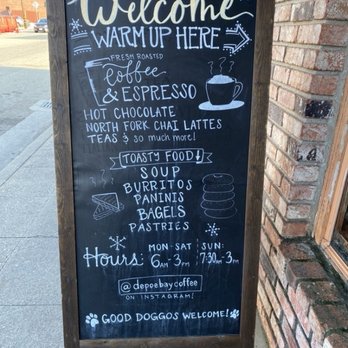 Welcome
WARM UP HERE
FRESH ROASTED
Coffee
& ESPRESSO
HOT CHOCOLATE
NORTH FORK CHAI LATTES
TEAS & so much more!
TOASTY FOOD!
SOUP
BURRITOS
PANINIS
BAGELS
PASTRIES
Hours: MON-SAT SUN:
6AM-3PM 7:30AM-3PM
@depoebaycoffee
ON INSTAGRAM!
GOOD DOGGOS WELCOME!